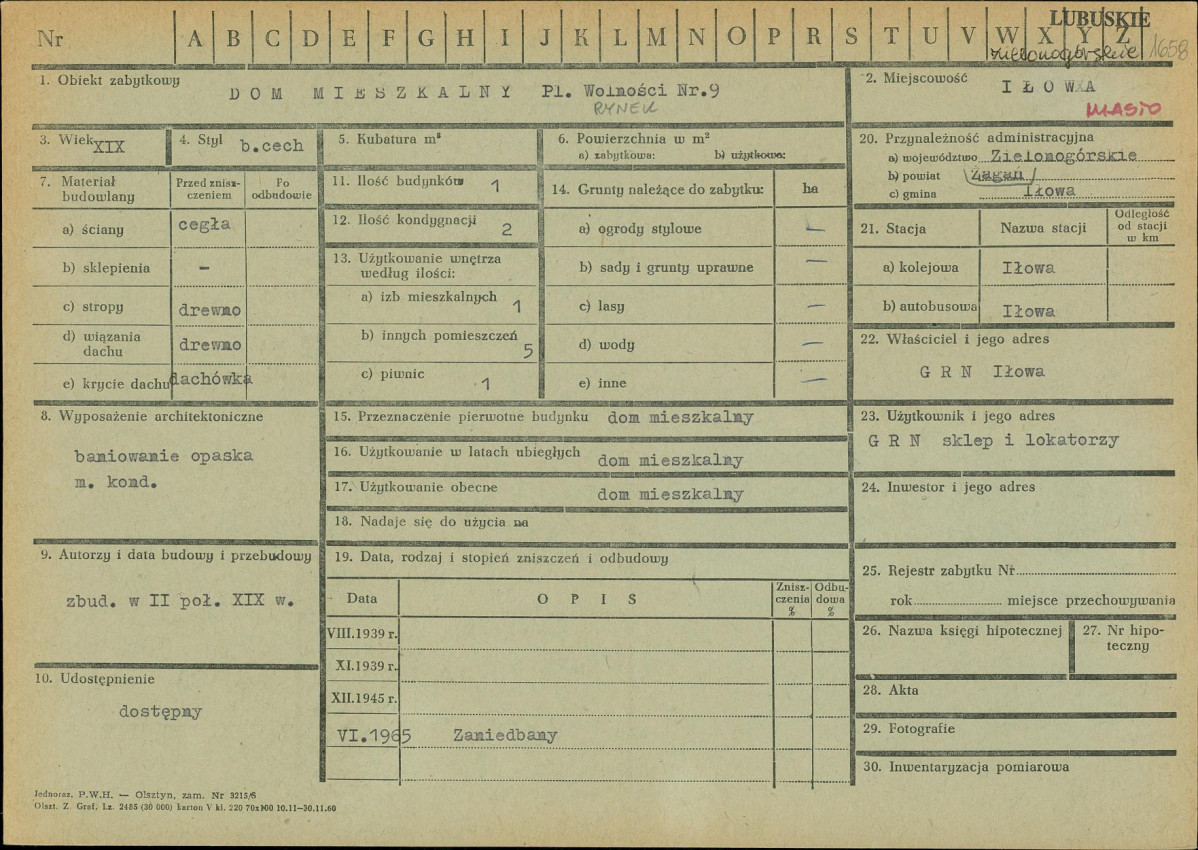 LUBUSKIE
Nr A B C D E F G H I J K L M N O P R S T U V W X Y Z
zielonogórskie 1658
1. Obiekt zabytkowy
DOM MIESZKALNY Pl. Wolności Nr.9
RYNEK
2. Miejscowość
IŁOWA
MIASTO
3. Wiek XIX
4. Styl b.cech
5. Kubatura m³
6. Powierzchnia w m²
a) zabytkowa: b) użytkowa:
20. Przynależność administracyjna
a) województwo Zielonogórskie
b) powiat Żagań
c) gmina Iłowa
7. Materiał budowlany
Przed znisz-
czeniem
Po
odbudowie
a) ściany cegła
b) sklepienia -
c) stropy drewno
d) wiązania
dachu drewno
e) krycie dachu dachówka
11. Ilość budynków 1
12. Ilość kondygnacji 2
13. Użytkowanie wnętrza
według ilości:
a) izb mieszkalnych 1
b) innych pomieszczeń 5
c) piwnic 1
14. Grunty należące do zabytku: ha
a) ogrody stylowe —
b) sady i grunty uprawne —
c) lasy —
d) wody —
e) inne —
21. Stacja Nazwa stacji
Odległość
od stacji
w km
a) kolejowa Iłowa
b) autobusowa Iłowa
22. Właściciel i jego adres
G R N Iłowa
8. Wyposażenie architektoniczne
baniowanie opaska
m. kond.
15. Przeznaczenie pierwotne budynku dom mieszkalny
16. Użytkowanie w latach ubiegłych dom mieszkalny
17. Użytkowanie obecne dom mieszkalny
18. Nadaje się do użycia na
23. Użytkownik i jego adres
G R N sklep i lokatorzy
24. Inwestor i jego adres
9. Autorzy i data budowy i przebudowy
zbud. w II poł. XIX w.
19. Data, rodzaj i stopień zniszczeń i odbudowy
Data O P I S
Znisz-
czenia
%
Odbu-
dowa
%
VIII.1939 r.
XI.1939 r.
XII.1945 r.
VI.1965 Zaniedbany
25. Rejestr zabytku Nr
rok miejsce przechowywania
26. Nazwa księgi hipotecznej
27. Nr hipo-
teczny
10. Udostępnienie
dostępny
28. Akta
29. Fotografie
30. Inwentaryzacja pomiarowa
Jednoraz. P.W.H. — Olsztyn, zam. Nr 3215/6
Olszt. Z. Graf. Lz. 2485 (30 000) karton V kl. 220 70x100 10.11—30.11.60